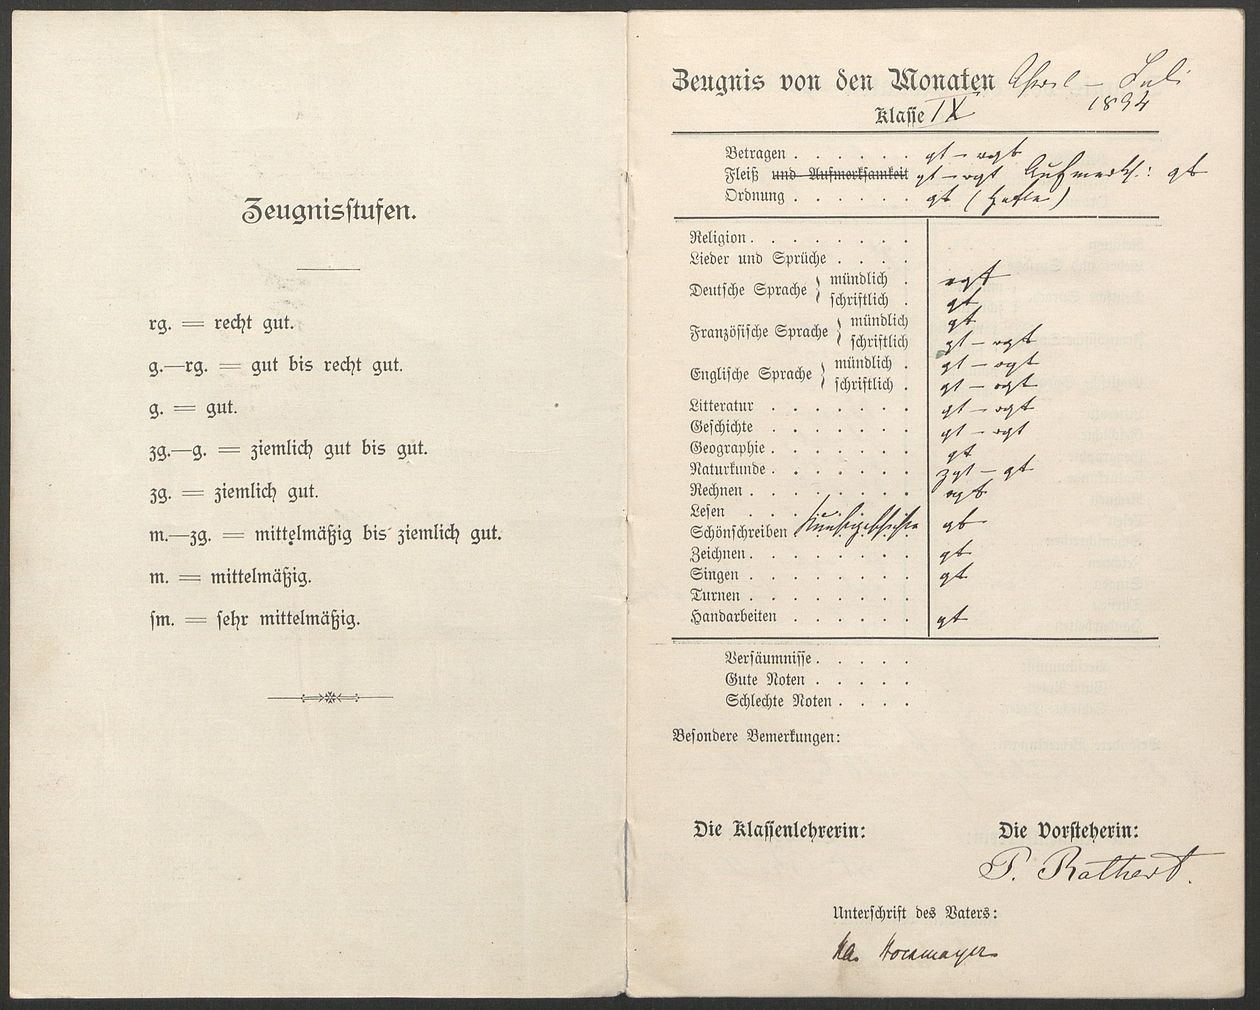 Zeugnisstufen.
rg. = recht gut.
g.—rg. = gut bis recht gut.
g. = gut.
zg.—g. = ziemlich gut bis gut.
zg. = ziemlich gut.
m.—zg. = mittelmäßig bis ziemlich gut.
m. = mittelmäßig.
sm. = sehr mittelmäßig.
Zeugnis von den Monaten April – Juli
1894
Klasse IX
Betragen . . . . . . gt – rgt
Fleiß und Aufmerksamkeit gt – rgt Aufmerks.: gt
Ordnung . . . . . . gt (Hefte)
Religion . . . . . . . .
Lieder und Sprüche . . . .
Deutsche Sprache } mündlich . rgt
schriftlich . gt
Französische Sprache } mündlich gt
schriftlich gt – rgt
Englische Sprache } mündlich . gt – rgt
schriftlich . gt – rgt
Litteratur . . . . . . . gt – rgt
Geschichte . . . . . . . gt – rgt
Geographie . . . . . . . gt
Naturkunde . . . . . . . zgt – gt
Rechnen . . . . . . . . rgt
Lesen . . .
Schönschreiben Kunstgeschichte gt
Zeichnen . . . . . . . . gt
Singen . . . . . . . . gt
Turnen . . . . . . . .
Handarbeiten . . . . . . gt
Versäumnisse . . . . .
Gute Noten . . . . .
Schlechte Noten . . . .
Besondere Bemerkungen:
Die Klassenlehrerin: Die Vorsteherin:
P. Rathert.
Unterschrift des Vaters:
Hockmayer